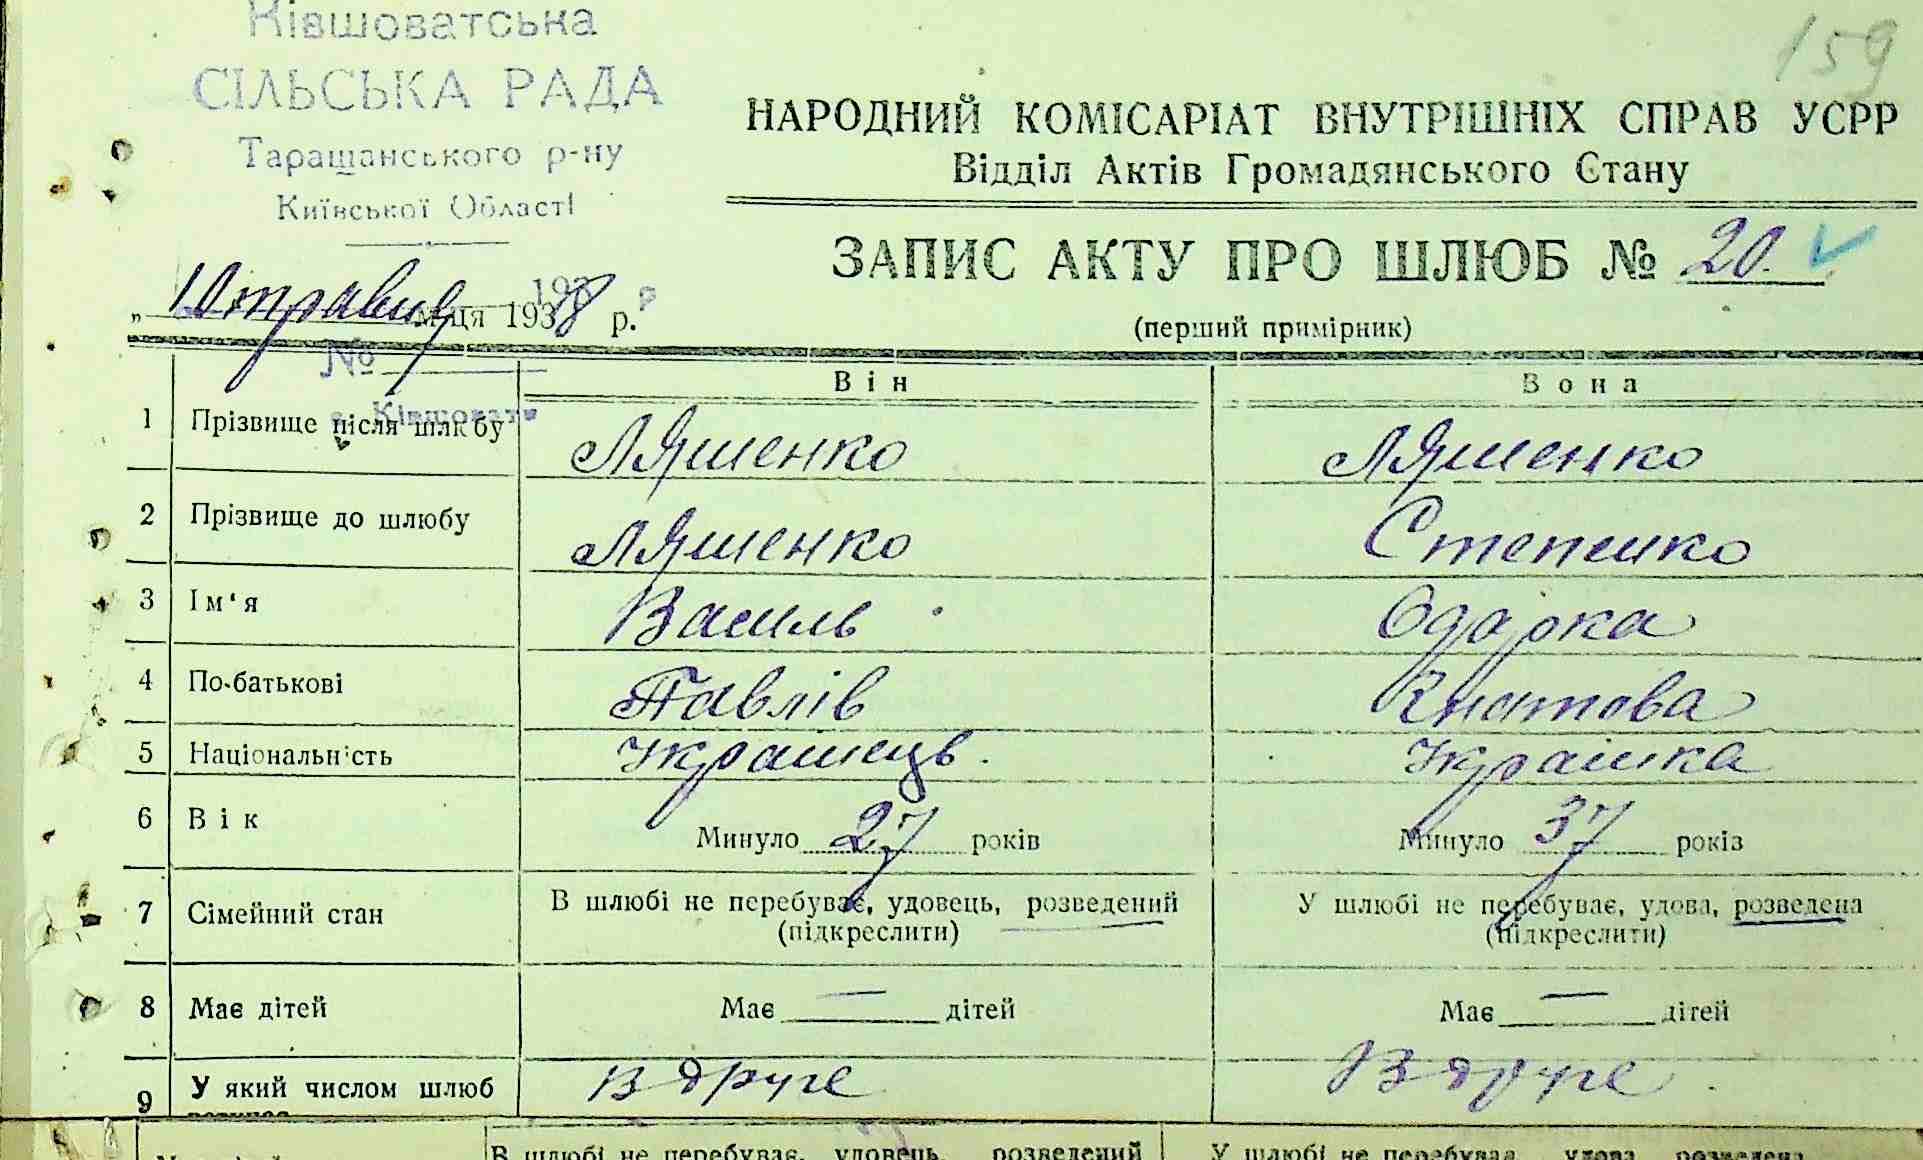 Ківшоватська
СІЛЬСЬКА РАДА
Таращанського р-ну
Київської Області
159
НАРОДНИЙ КОМІСАРІАТ ВНУТРІШНІХ СПРАВ УСРР
Відділ Актів Громадянського Стану
ЗАПИС АКТУ ПРО ШЛЮБ № 20.
(перший примірник)
„ 10 травня м-ця 1938 р.
193 р.
№
с. Ківшовата
Він Вона
1 Прізвище після шлюбу Ляшенко Ляшенко
2 Прізвище до шлюбу Ляшенко Степенко
3 Ім'я Василь Одарка
4 По-батькові Павлів Гнатова
5 Національність Українець. Українка
6 Вік Минуло 27 років Минуло 37 років
7 Сімейний стан В шлюбі не перебуває, удовець, розведений У шлюбі не перебуває, удова, розведена
(підкреслити) (підкреслити)
8 Має дітей Має — дітей Має — дітей
9 У який числом шлюб Вдруге Вдруге
В шлюбі не перебуває, удовець, розведений У шлюбі не перебуває, удова, розведена